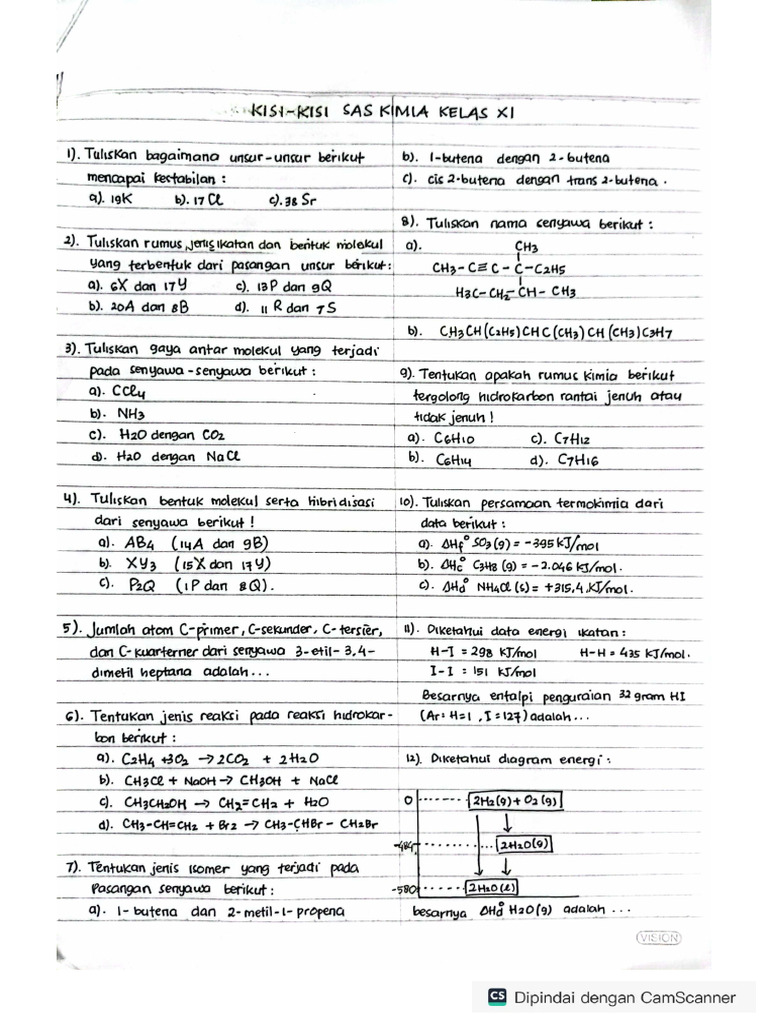 KISI-KISI SAS KIMIA KELAS XI
1). Tuliskan bagaimana unsur-unsur berikut
mencapai kestabilan :
a). 19K b). 17 Cl c). 38 Sr
2). Tuliskan rumus, jenis ikatan dan bentuk molekul
yang terbentuk dari pasangan unsur berikut:
a). 6X dan 17Y c). 13P dan 9Q
b). 20A dan 8B d). 11 R dan 7S
3). Tuliskan gaya antar molekul yang terjadi
pada senyawa-senyawa berikut :
a). CCl4
b). NH3
c). H2O dengan CO2
d). H2O dengan NaCl
4). Tuliskan bentuk molekul serta hibridisasi
dari senyawa berikut !
a). AB4 (14A dan 9B)
b). XY3 (15X dan 17Y)
c). P2Q (1P dan 8Q).
5). Jumlah atom C-primer, C-sekunder, C-tersier,
dan C-kuarterner dari senyawa 3-etil-3,4-
dimetil heptana adalah...
6). Tentukan jenis reaksi pada reaksi hidrokar-
bon berikut :
a). C2H4 + 3O2 → 2CO2 + 2H2O
b). CH3Cl + NaOH → CH3OH + NaCl
c). CH3CH2OH → CH2=CH2 + H2O
d). CH3-CH=CH2 + Br2 → CH3-CHBr-CH2Br
7). Tentukan jenis isomer yang terjadi pada
pasangan senyawa berikut :
a). 1-butena dan 2-metil-1-propena
b). 1-butena dengan 2-butena
c). cis 2-butena dengan trans 2-butena.
8). Tuliskan nama senyawa berikut :
a). CH3
CH3-C≡C-C-C2H5
H3C-CH2-CH-CH3
b). CH3CH(C2H5)CHC(CH3)CH(CH3)C3H7
9). Tentukan apakah rumus kimia berikut
tergolong hidrokarbon rantai jenuh atau
tidak jenuh !
a). C6H10 c). C7H12
b). C6H14 d). C7H16
10). Tuliskan persamaan termokimia dari
data berikut :
a). ΔHf° SO3(g) = -395 kJ/mol
b). ΔHc° C3H8 (g) = -2.046 kJ/mol.
c). ΔHd° NH4Cl (s) = +315,4 KJ/mol.
11). Diketahui data energi ikatan :
H-I = 298 KJ/mol H-H = 435 KJ/mol.
I-I = 151 KJ/mol
Besarnya entalpi penguraian 32 gram HI
(Ar: H=1, I=127) adalah...
12). Diketahui diagram energi :
0 2H2(g) + O2(g)
-484 2H2O(g)
-580 2H2O(l)
besarnya ΔHd° H2O(g) adalah ...
VISION
CS Dipindai dengan CamScanner